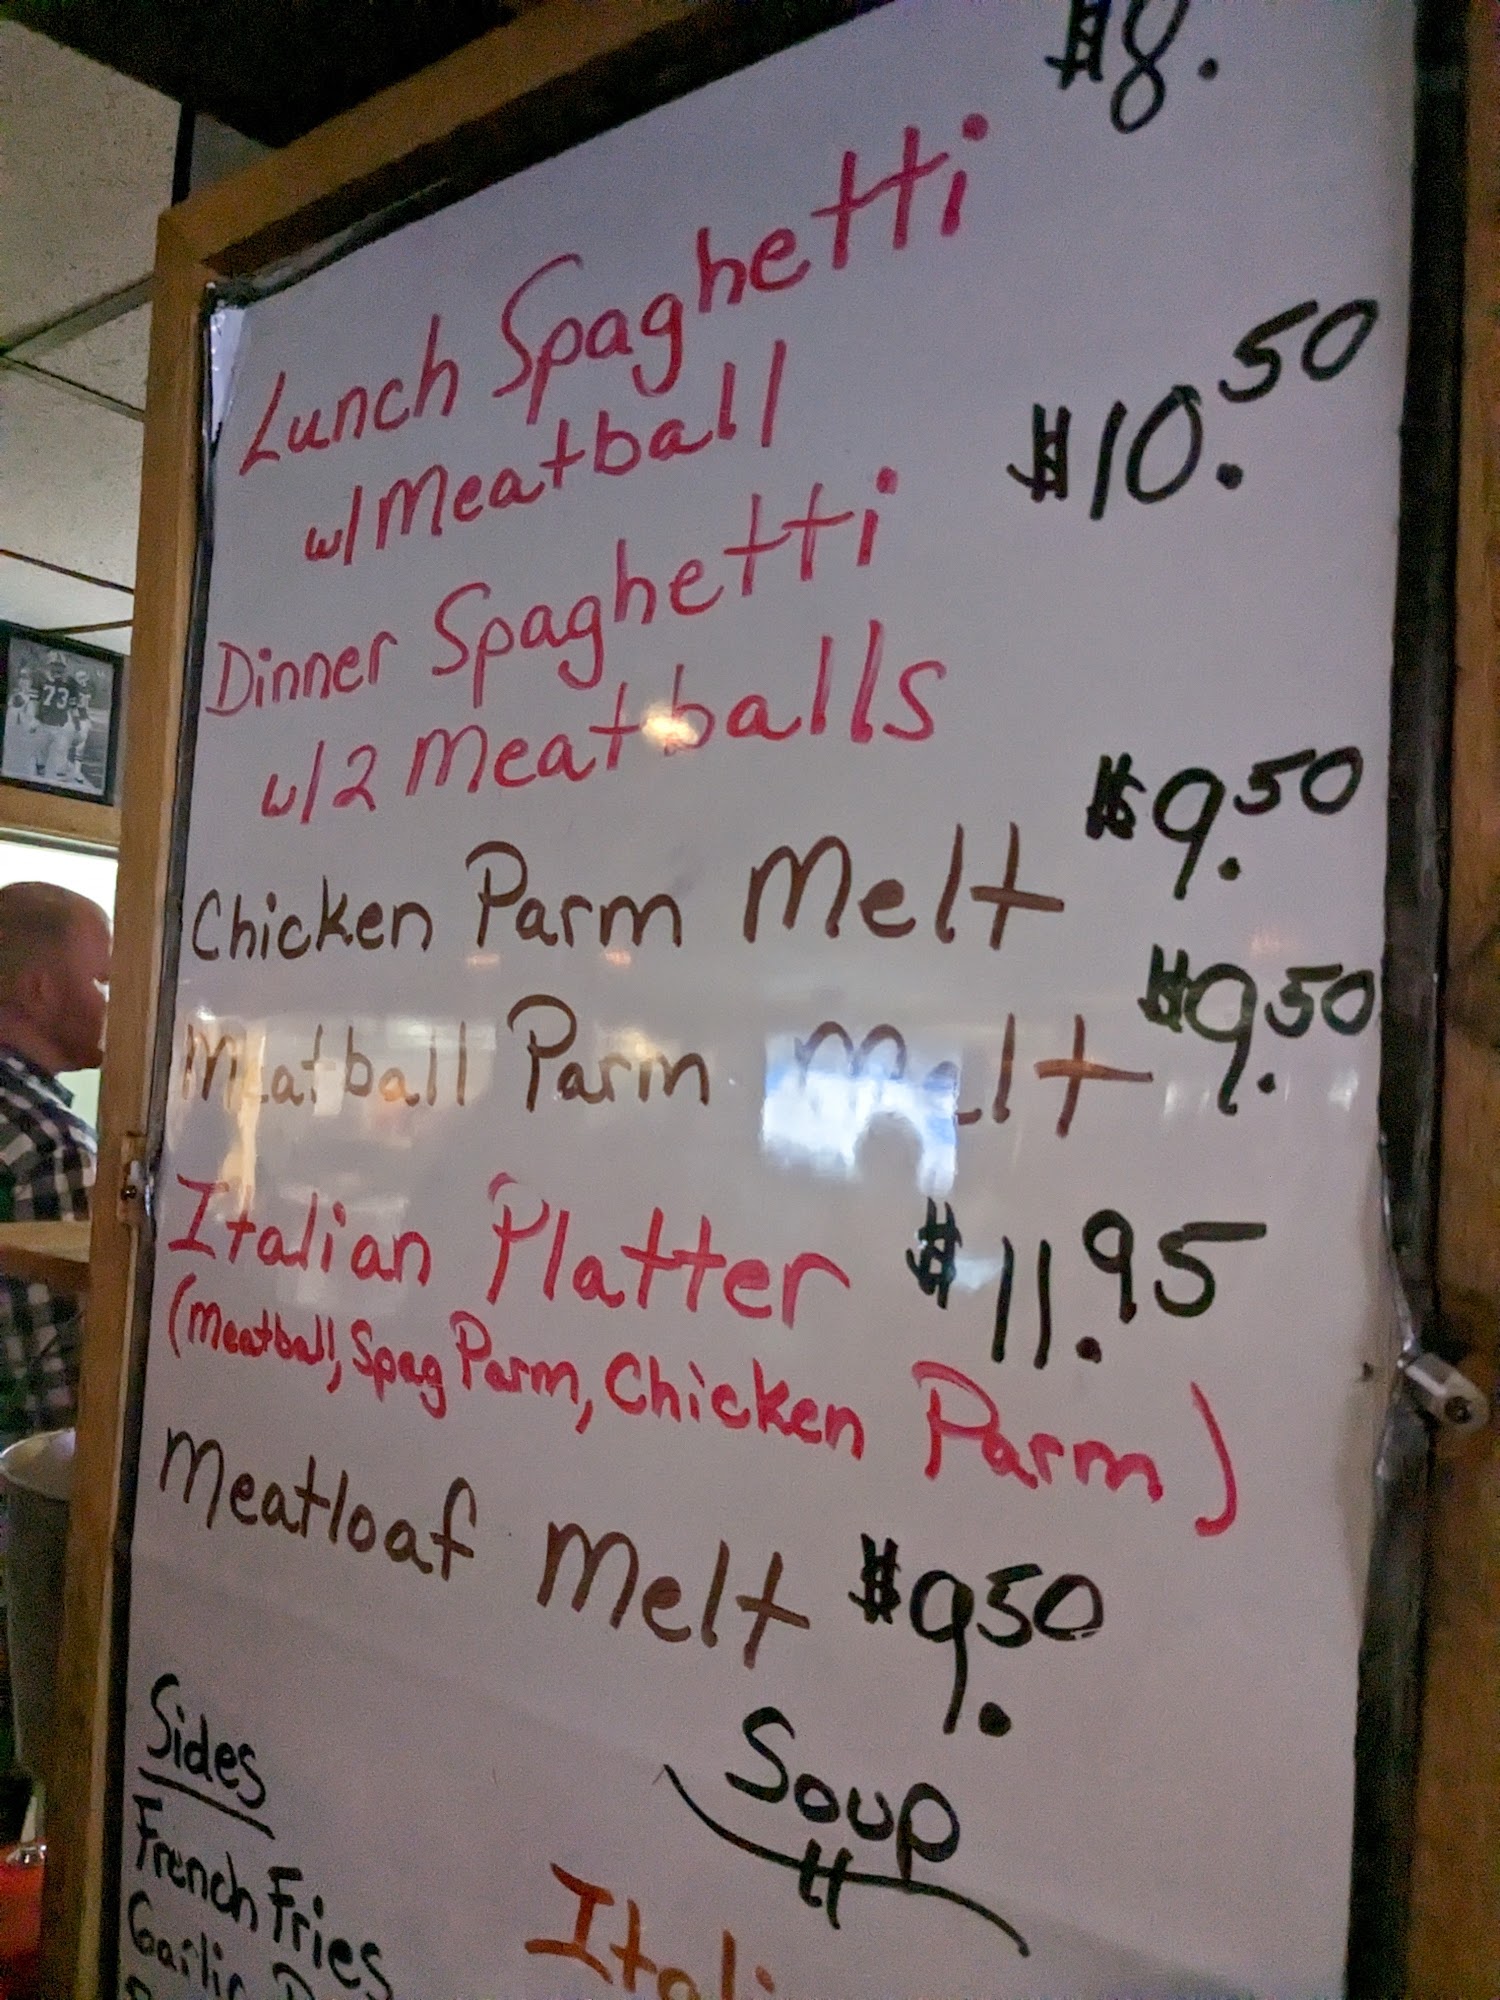 $8.
Lunch Spaghetti
w/ Meatball
$10.50
Dinner Spaghetti
w/2 Meatballs
Chicken Parm Melt $9.50
Meatball Parm Melt $9.50
Italian Platter $11.95
(Meatball, Spag Parm, Chicken Parm)
Meatloaf Melt $9.50
Sides
French Fries
Garlic
Soup
73